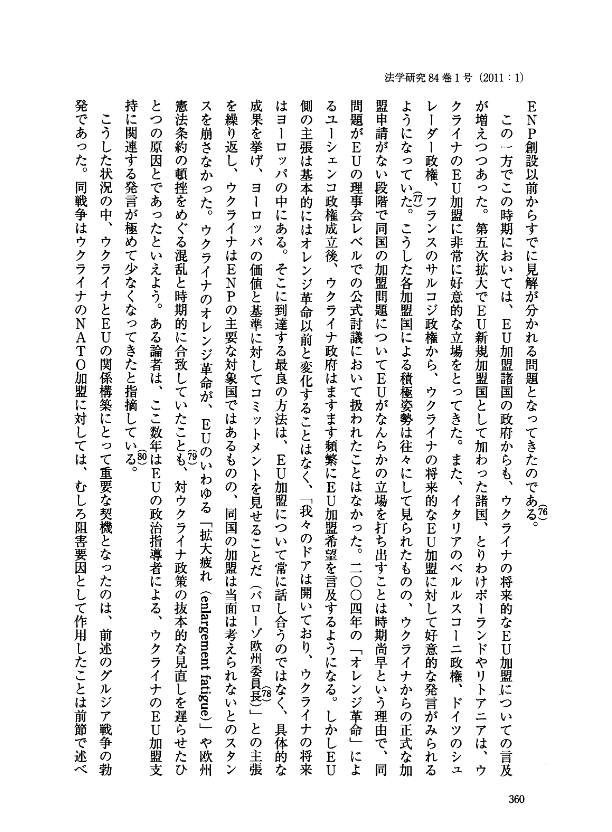 法学研究 84 巻 1 号（2011：1）
ENP創設以前からすでに見解が分かれる問題となってきたのである。(76)
この一方でこの時期においては、EU加盟諸国の政府からも、ウクライナの将来的なEU加盟についての言及
が増えつつあった。第五次拡大でEU新規加盟国として加わった諸国、とりわけポーランドやリトアニアは、ウ
クライナのEU加盟に非常に好意的な立場をとってきた。また、イタリアのベルルスコーニ政権、ドイツのシュ
レーダー政権、フランスのサルコジ政権から、ウクライナの将来的なEU加盟に対して好意的な発言がみられる
ようになっていた。(77)こうした各加盟国による積極姿勢は往々にして見られたものの、ウクライナからの正式な加
盟申請がない段階で同国の加盟問題についてEUがなんらかの立場を打ち出すことは時期尚早という理由で、同
問題がEUの理事会レベルでの公式討議において扱われたことはなかった。二〇〇四年の「オレンジ革命」によ
るユーシェンコ政権成立後、ウクライナ政府はますます頻繁にEU加盟希望を言及するようになる。しかしEU
側の主張は基本的にはオレンジ革命以前と変化することはなく、「我々のドアは開いており、ウクライナの将来
はヨーロッパの中にある。そこに到達する最良の方法は、EU加盟について常に話し合うのではなく、具体的な
成果を挙げ、ヨーロッパの価値と基準に対してコミットメントを見せることだ（バローゾ欧州委員長）」(78)との主張
を繰り返し、ウクライナはENPの主要な対象国ではあるものの、同国の加盟は当面は考えられないとのスタン
スを崩さなかった。ウクライナのオレンジ革命が、EUのいわゆる「拡大疲れ（enlargement fatigue）」や欧州
憲法条約の頓挫をめぐる混乱と時期的に合致していたことも、(79)対ウクライナ政策の抜本的な見直しを遅らせたひ
とつの原因とであったといえよう。ある論者は、ここ数年はEUの政治指導者による、ウクライナのEU加盟支
持に関連する発言が極めて少なくなってきたと指摘している。(80)
こうした状況の中、ウクライナとEUの関係構築にとって重要な契機となったのは、前述のグルジア戦争の勃
発であった。同戦争はウクライナのNATO加盟に対しては、むしろ阻害要因として作用したことは前節で述べ
360